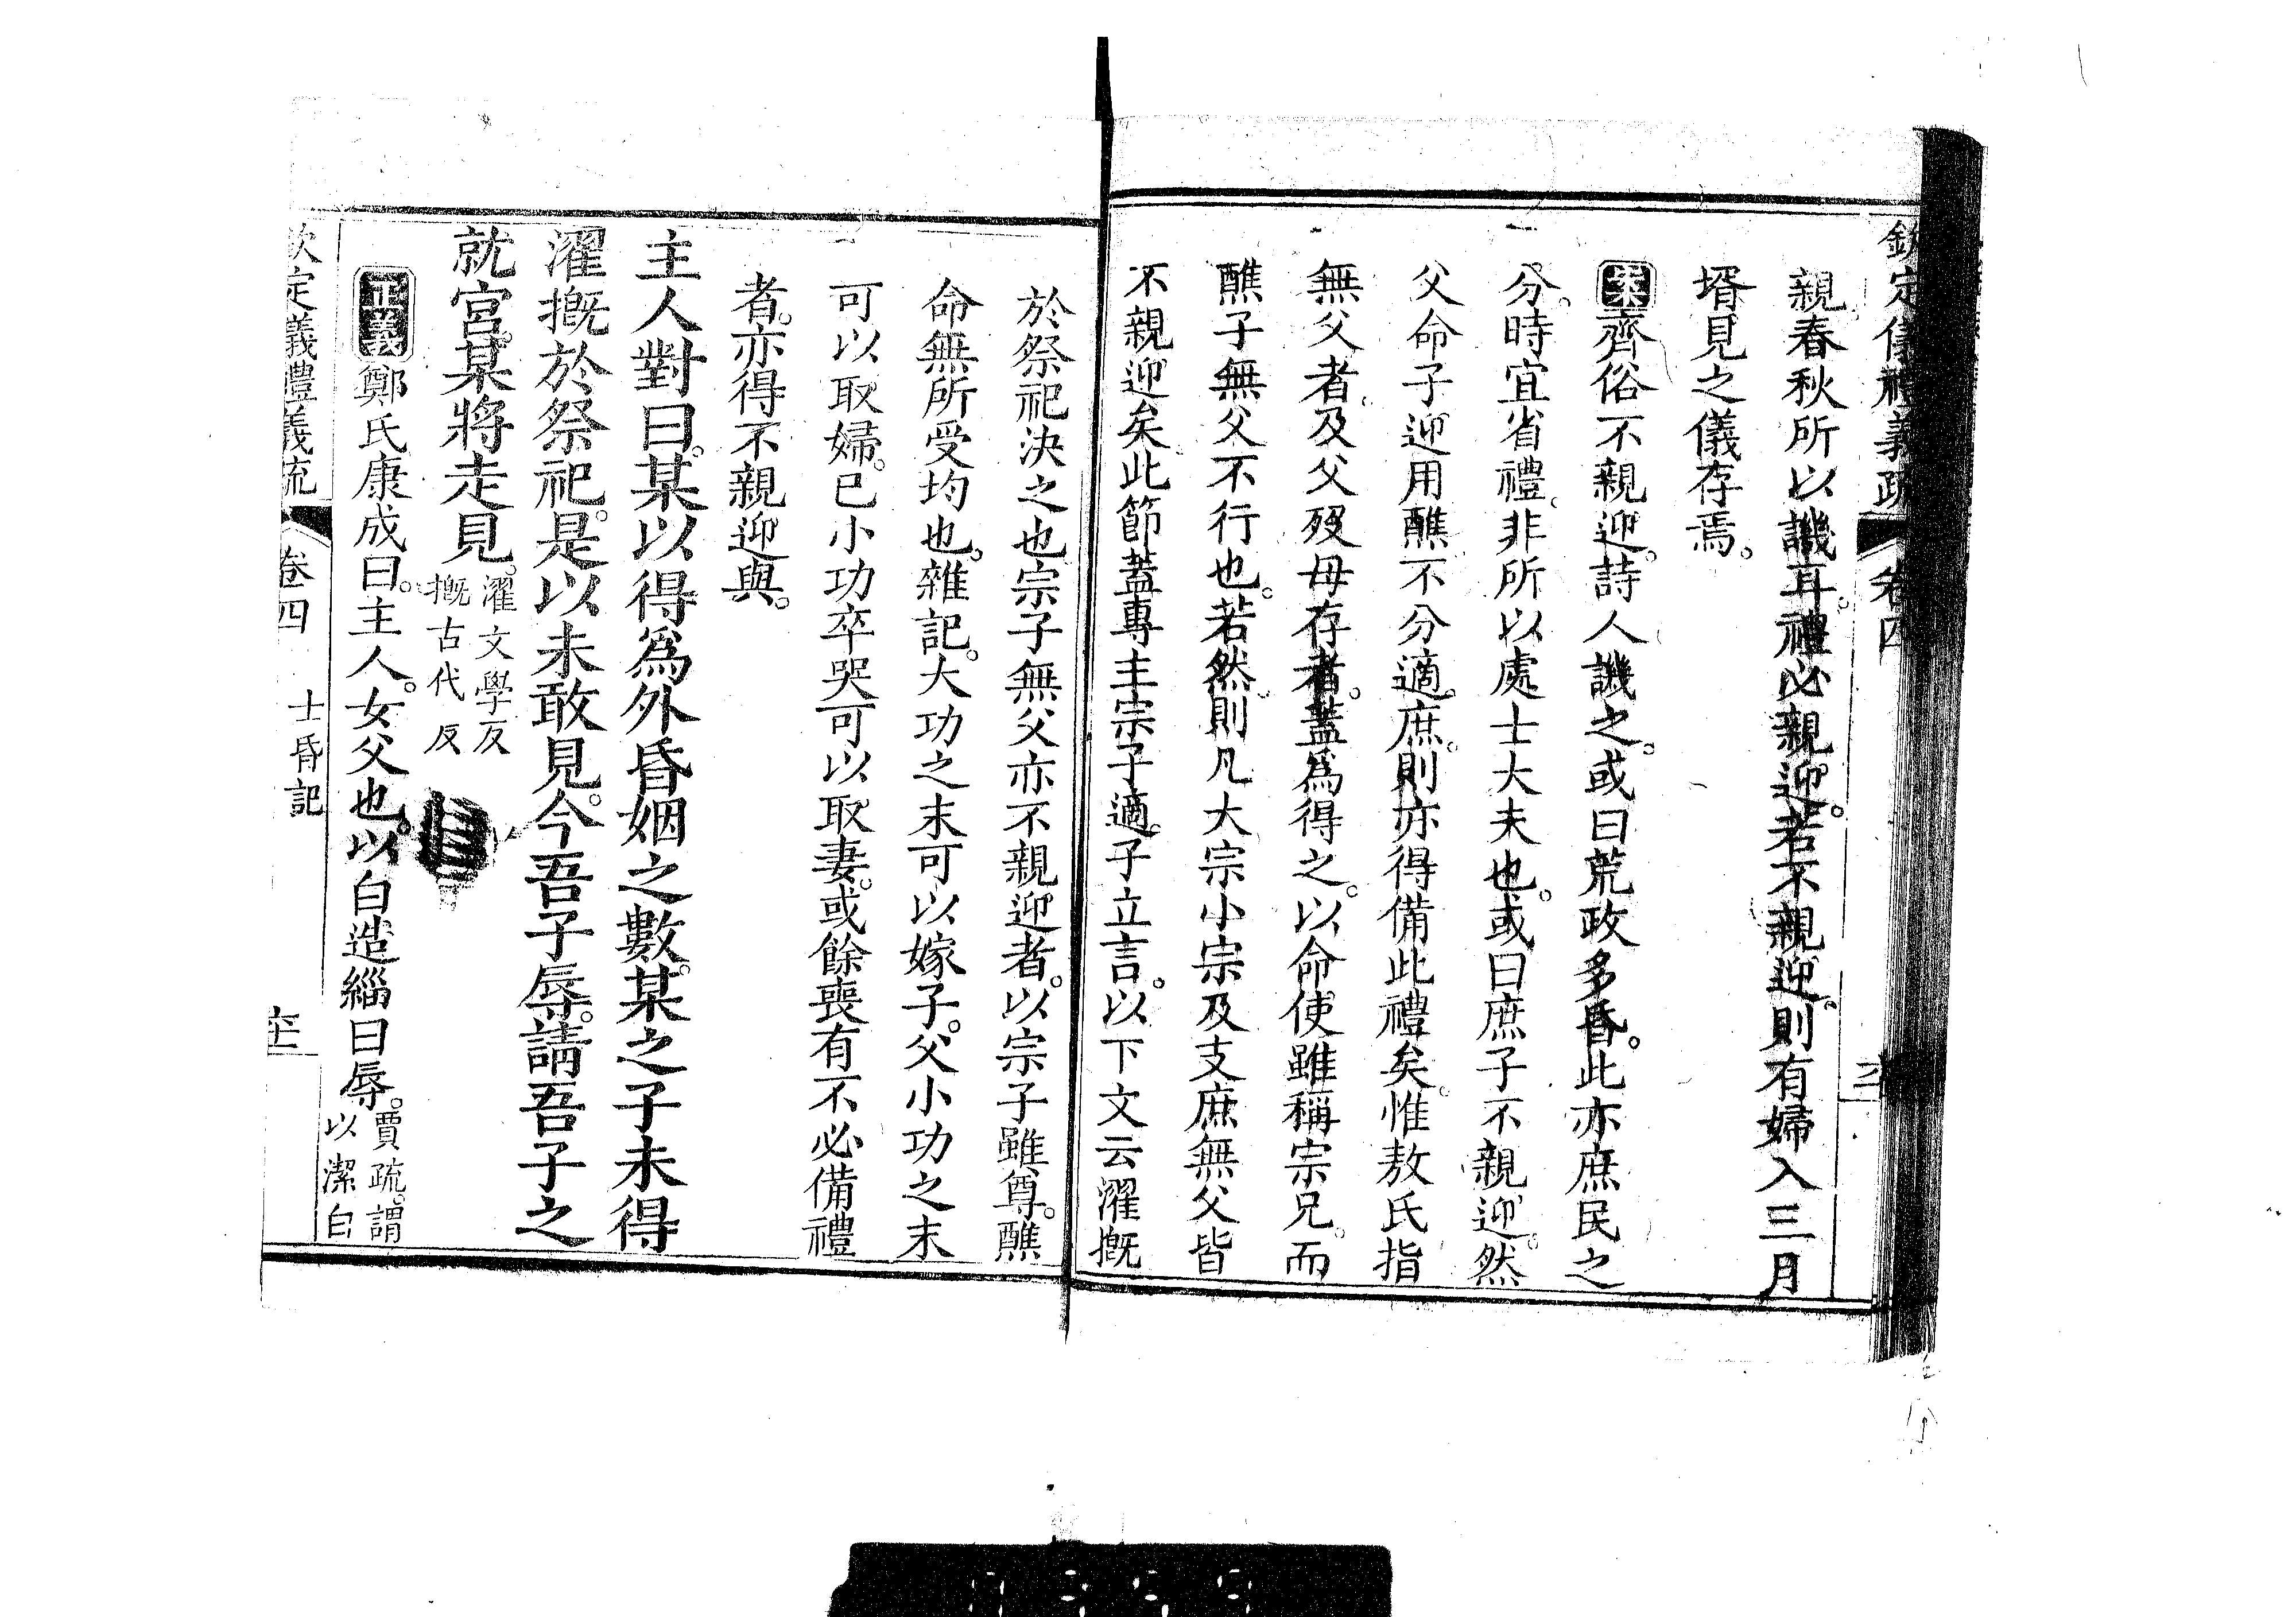 欽定儀禮義疏 卷四
親。春秋所以譏耳。禮必親迎。若不親迎。則有婦入三月
壻見之儀存焉。
案齊俗不親迎。詩人譏之。或曰荒政多昏。此亦庶民之
分。時宜省禮。非所以處士大夫也。或曰庶子不親迎。然
父命子迎用醮。不分適庶。則亦得備此禮矣。惟敖氏指
無父者。及父歿母存者。蓋爲得之。以命使雖稱宗兄。而
醮子無父不行也。若然。則凡大宗小宗及支庶無父皆
不親迎矣。此節蓋專主宗子適子立言。以下文云濯摡
於祭祀決之也。宗子無父亦不親迎者。以宗子雖尊。醮
命無所受均也。雜記。大功之末可以嫁子。父小功之末
可以取婦。已小功卒哭可以取妻。或餘喪有不必備禮
者。亦得不親迎與。
主人對曰。某以得爲外昏姻之數。某之子未得
濯摡於祭祀。是以未敢見。今吾子辱。請吾子之
就宮。某將走見。濯文學反
摡古代反
正義鄭氏康成曰。主人。女父也。以白造緇曰辱。賈疏。謂
以潔白
欽定儀禮義疏 卷四 士昏記